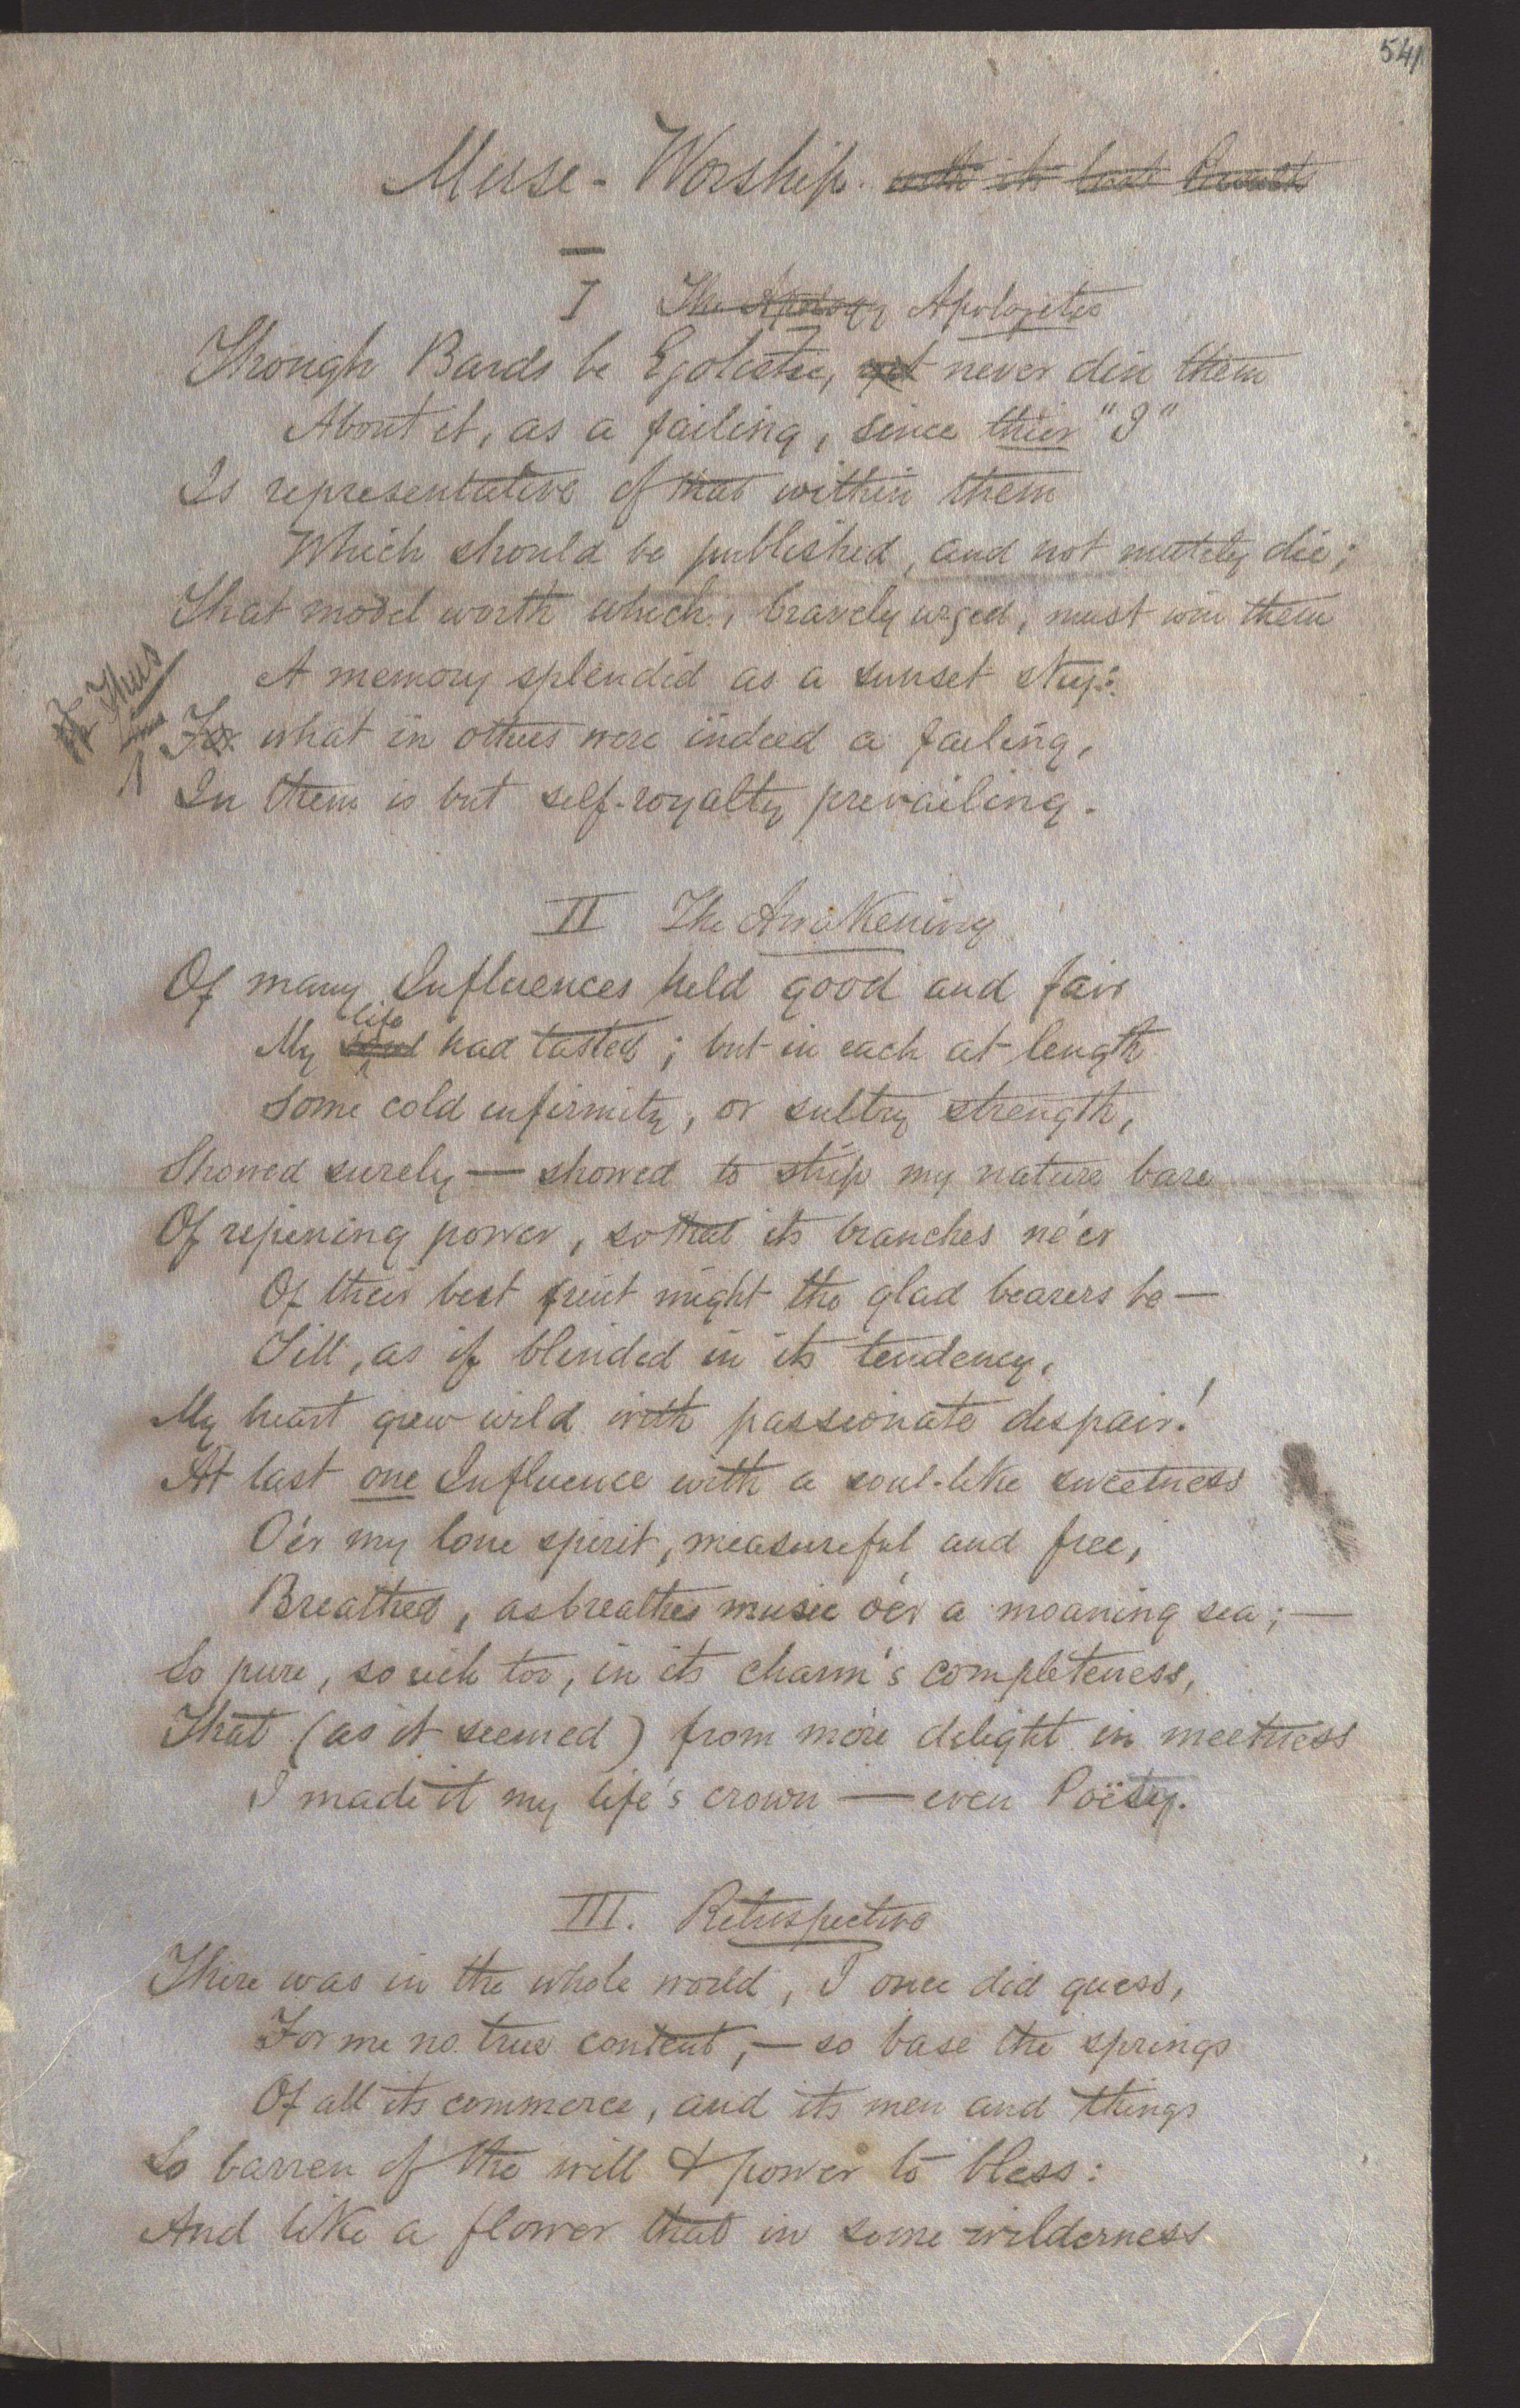 541
Muse-Worship. with its last
I The Apology Apologetic
Though Bards be Egotistic, yet never din them
About it, as a failing, since thier "I"
Is representative of that within them
Which should be published, and not mutely die;
That model worth which, bravely urged, must win them
A memory splendid as a sunset sky:
Thus
For what in others were indeed a failing,
In them is but self-royalty prevailing.
II The Awakening
Of many Influences held good and fair
life
My soul had tasted; but in each at length
Some cold infirmity, or sultry strength,
Showed surely — showed to strip my nature bare
Of ripening power, so that its branches ne'er
Of their best fruit might the glad bearers be —
Till, as if blinded in its tendency,
My heart grew wild with passionate despair!
At last one Influence with a soul-like sweetness
O'er my lone spirit, measureful and free,
Breathed, as breathes music o'er a moaning sea; —
So pure, so rich too, in its charm's completeness,
That (as it seemed) from more delight in meetness
I made it my life's crown — even Poësy.
III. Retrospective
There was in the whole world, I once did guess,
For me no true content, — so base the springs
Of all its commerce, and its men and things
So barren of the will & power to bless:
And like a flower that in some wilderness